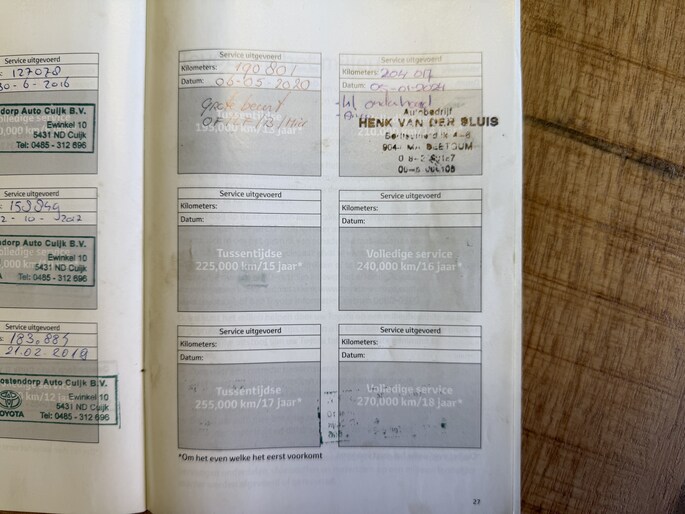 Service uitgevoerd
127078
30-6-2016
ndorp Auto Cuijk B.V.
Ewinkel 10
5431 ND Cuijk
Tel: 0485 - 312 696
Service uitgevoerd
2012
ndorp Auto Cuijk B.V.
Ewinkel 10
5431 ND Cuijk
Tel: 0485 - 312 696
Service uitgevoerd
183.884
21.02.2019
ostendorp Auto Cuijk B.V.
km/12
Ewinkel 10
5431 ND Cuijk
Tel: 0485 - 312 696
TOYOTA
Service uitgevoerd
Kilometers: 190801
Datum: 06-05-2020
Grote beurt
195,000 km/13 jaar*
Service uitgevoerd
Kilometers: 204 017
Datum: 05-01-2021
onderhoud
Autobedrijf
HENK VAN DER SLUIS
Service uitgevoerd
Kilometers:
Datum:
Tussentijdse
225,000 km/15 jaar*
Service uitgevoerd
Kilometers:
Datum:
Volledige service
240,000 km/16 jaar*
Service uitgevoerd
Kilometers:
Datum:
Tussentijdse
255,000 km/17 jaar*
Service uitgevoerd
Kilometers:
Datum:
Volledige service
270,000 km/18 jaar*
*Om het even welke het eerst voorkomt
27